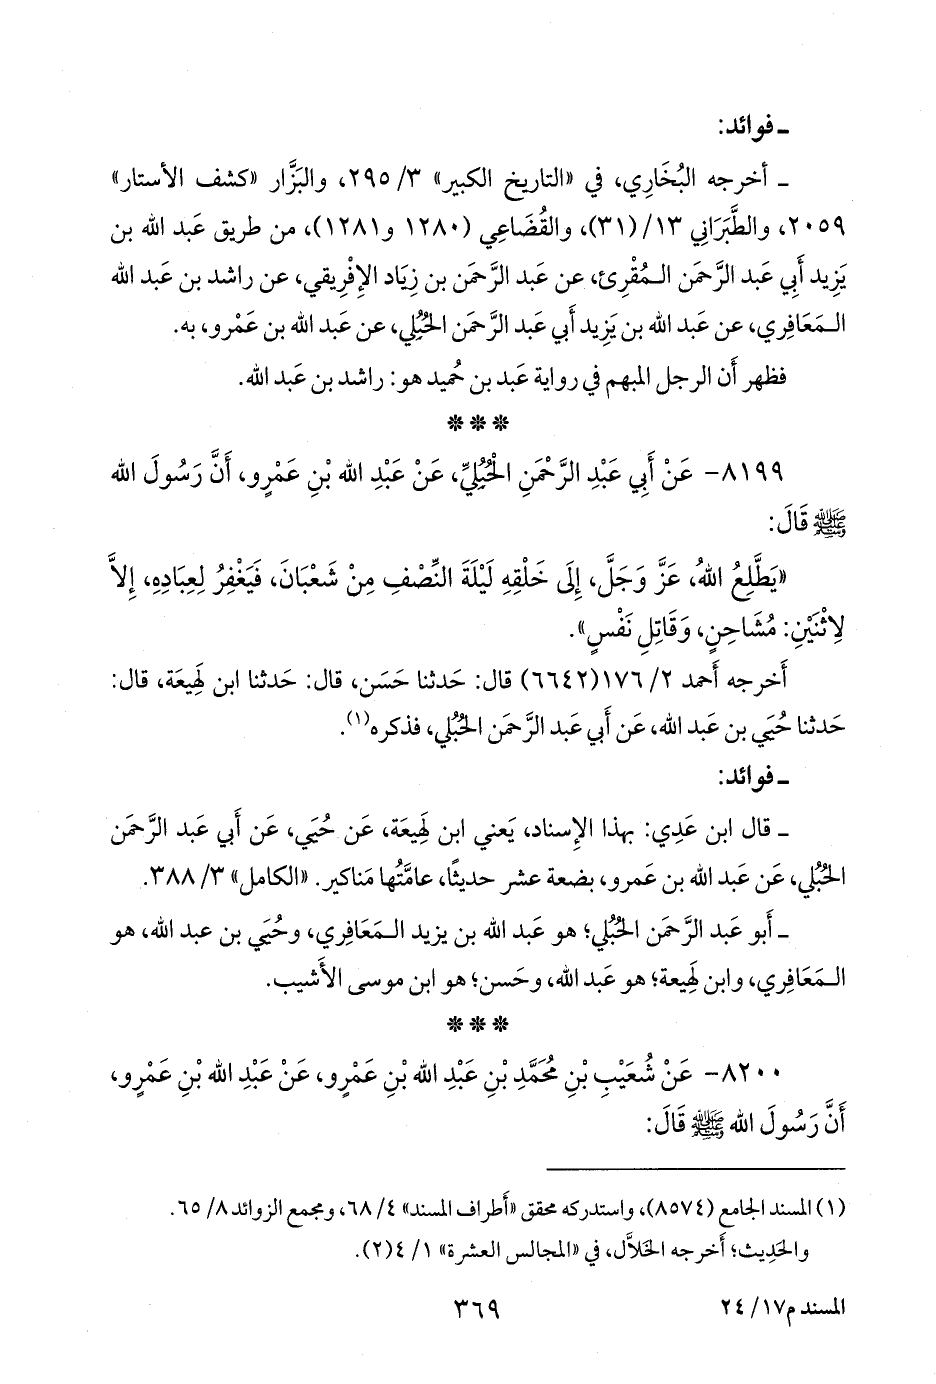 ـ فوائد:
ـ أخرجه البُخَاري، في «التاريخ الكبير» ٣/ ٢٩٥، والبَزَّار «كشف الأستار»
٢٠٥٩، والطَّبَرَاني ١٣/ (٣١)، والقُضَاعِي (١٢٨٠ و١٢٨١)، من طريق عَبد الله بن
يَزيد أَبي عَبد الرَّحمَن الـمُقْرِئ، عن عَبد الرَّحمَن بن زِيَاد الإِفْرِيقي، عن راشد بن عَبد الله
الـمَعَافِري، عن عَبد الله بن يَزيد أَبي عَبد الرَّحمَن الحُبُلي، عن عَبد الله بن عَمْرو، به.
فظهر أَن الرجل المبهم في رواية عَبد بن حُميد هو: راشد بن عَبد الله.
***
٨١٩٩- عَنْ أَبِي عَبْدِ الرَّحْمَنِ الْحُبُلِيِّ، عَنْ عَبْدِ الله بْنِ عَمْرٍو، أَنَّ رَسُولَ الله
ﷺ قَالَ:
«يَطَّلِعُ اللهُ، عَزَّ وَجَلَّ، إِلَى خَلْقِهِ لَيْلَةَ النِّصْفِ مِنْ شَعْبَانَ، فَيَغْفِرُ لِعِبَادِهِ، إِلاَّ
لاِثْنَيْنِ: مُشَاحِنٍ، وَقَاتِلِ نَفْسٍ».
أَخرجه أَحمد ٢/ ١٧٦(٦٦٤٢) قال: حَدثنا حَسَن، قال: حَدثنا ابن لَهِيعَة، قال:
حَدثنا حُيَي بن عَبد الله، عَن أَبي عَبد الرَّحمَن الحُبُلي، فذكره(١).
ـ فوائد:
ـ قال ابن عَدِي: بهذا الإِسناد، يَعني ابن لَهِيعَة، عَن حُيَي، عَن أَبي عَبد الرَّحمَن
الحُبُلي، عَن عَبد الله بن عَمرو، بضعة عشر حديثًا، عامَّتُها مَناكير. «الكامل» ٣/ ٣٨٨.
ـ أَبو عَبد الرَّحمَن الحُبُلي؛ هو عَبد الله بن يزيد الـمَعَافِري، وحُيَي بن عبد الله، هو
الـمَعَافِري، وابن لَهِيعة؛ هو عَبد الله، وحَسن؛ هو ابن موسى الأَشيب.
***
٨٢٠٠- عَنْ شُعَيْبِ بْنِ مُحَمَّدِ بْنِ عَبْدِ الله بْنِ عَمْرٍو، عَنْ عَبْدِ الله بْنِ عَمْرٍو،
أَنَّ رَسُولَ الله ﷺ قَالَ:
(١) المسند الجامع (٨٥٧٤)، واستدركه محقق «أَطراف المسند» ٤/ ٦٨، ومجمع الزوائد ٨/ ٦٥.
والحَدِيث؛ أَخرجه الخَلاَّل، في «المجالس العشرة» ١/ ٤(٢).
المسند م١٧/ ٢٤
٣٦٩